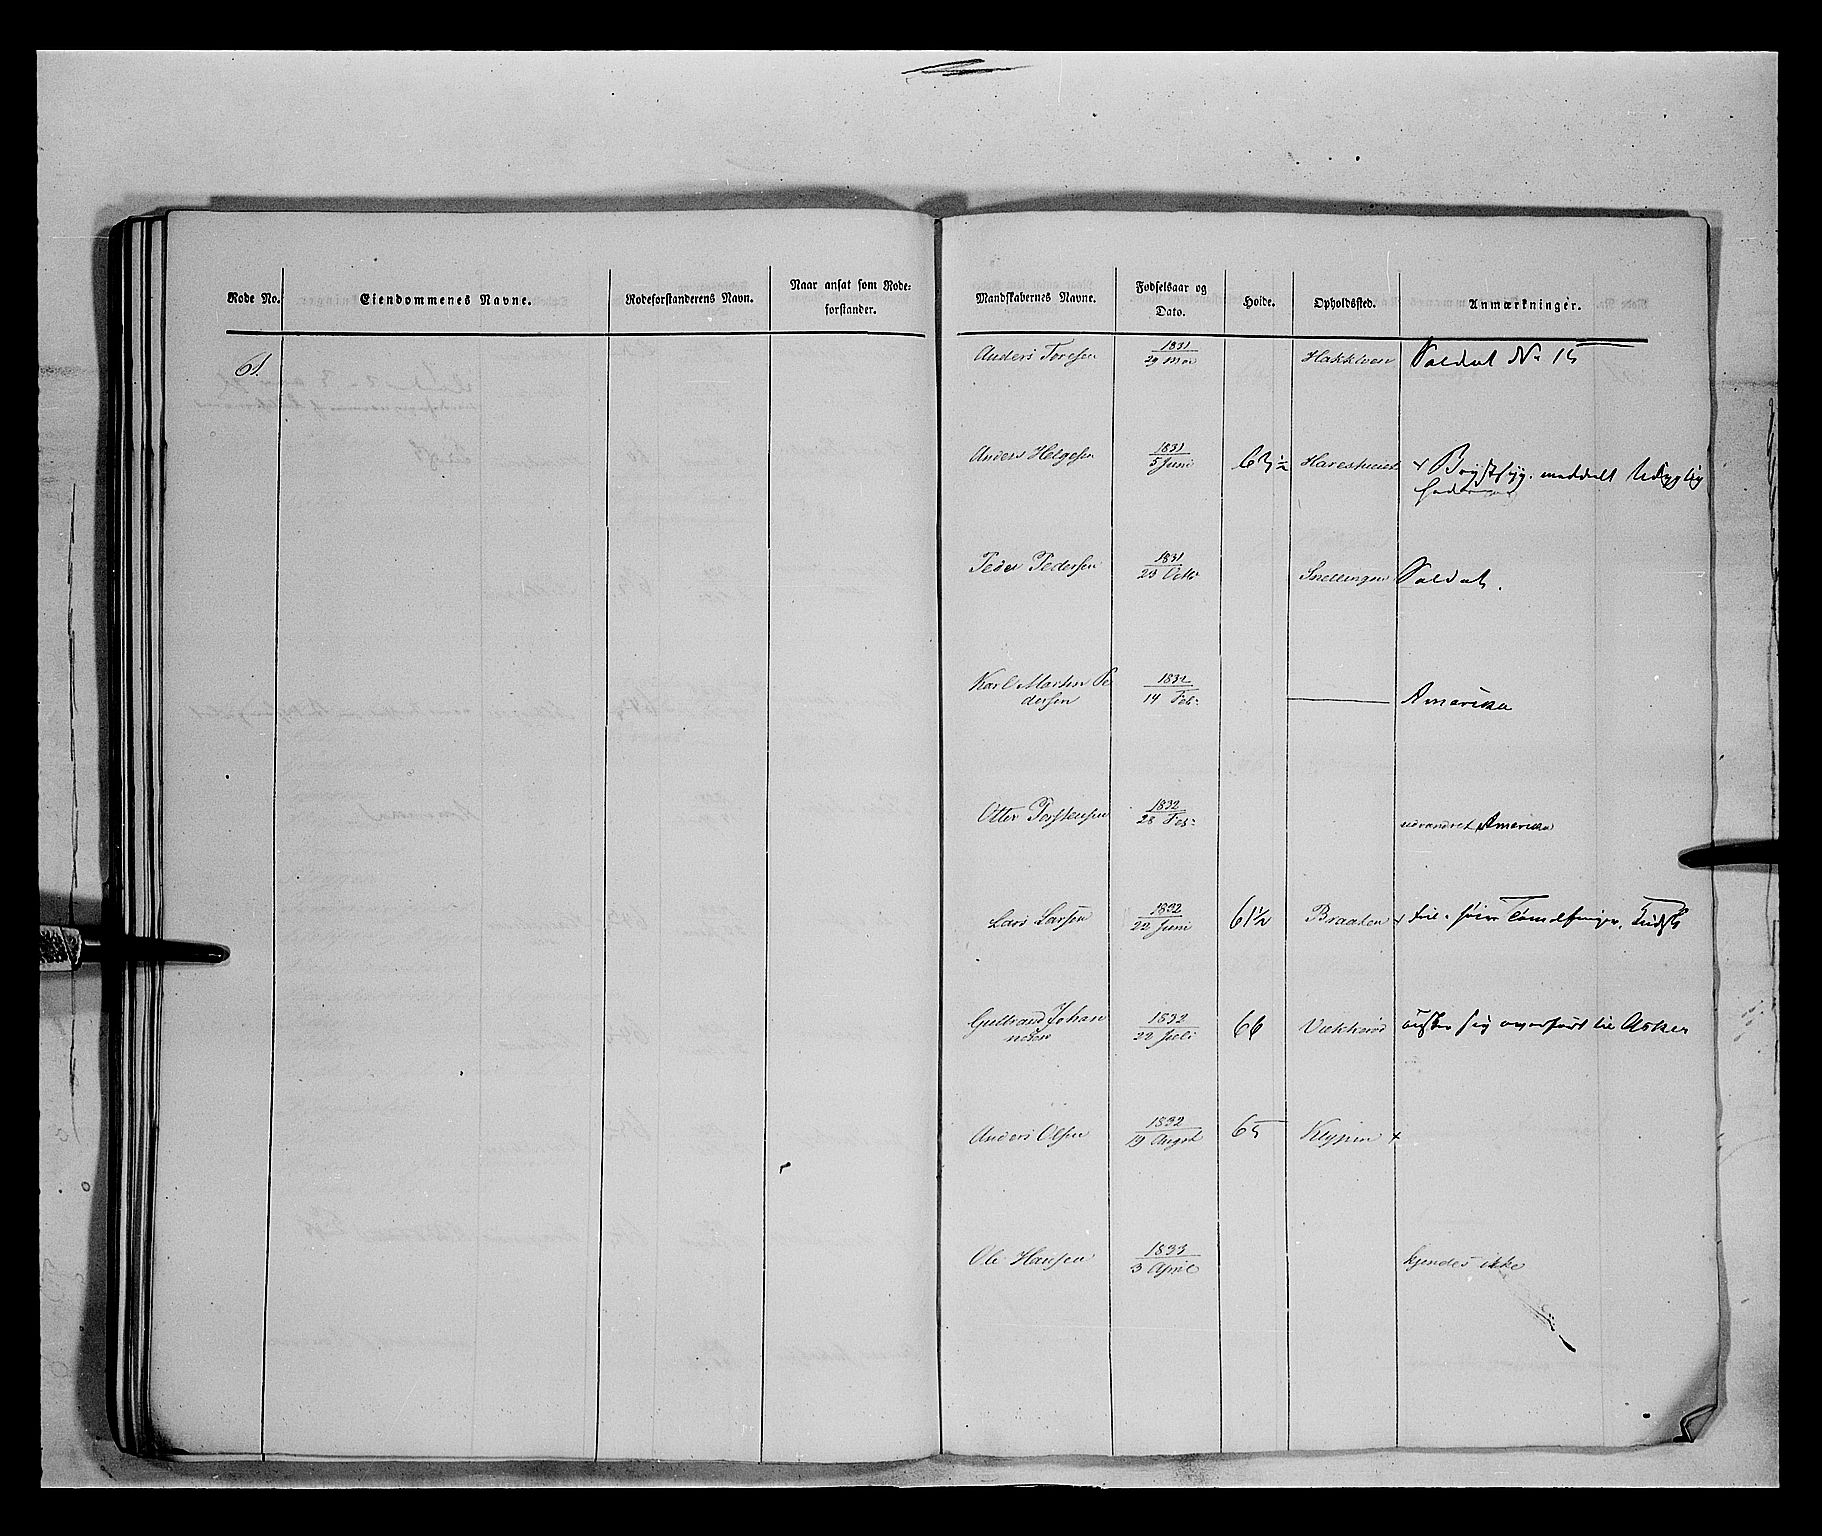 Rode No. Eiendommenes Navne. Rodeforstanderens Navn. Naar ansat som Rode-
forstander.
Mandskabernes Navne. Fødselsaar og
Dato. Hoide. Opholdssted. Anmærkninger.
61.
Anders Toresen 1831
29 Mai Hakkloen Soldat No 15
Anders Helgesen 1831
5 Juni 63½ + Brystsyg. meddelt Udygtig
Peder Pedersen 1831
23 Octbr Snellingen Soldat.
Karl Martin Pe
dersen 1832
14 Feb: Amerika
Otter Torstensen 1832
28 Feb: udvandret Amerika
Lars Larsen 1832
22 Juni 61½ Braaten +
Gulbrand Johan
nesen 1832
22 Juli 66 ønsker sig overført til Asker
Anders Olsen 1832
19 Augst 65 +
Ole Hansen 1833
3 April kjendes ikke